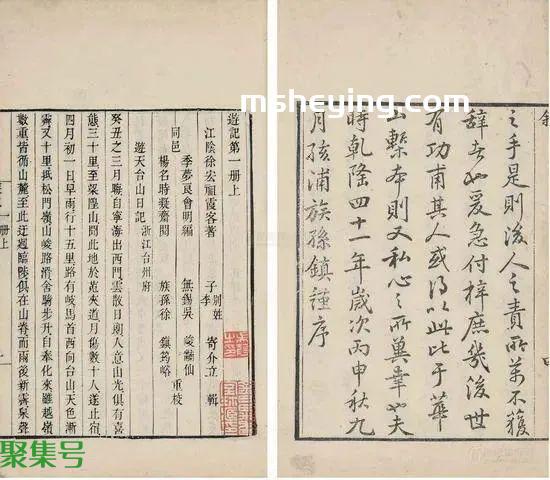 msheying.com
之手是則後人之責所萬不獲
辭者也爰急付梓庶幾後世
有功甫其人或得以此比于華
山槧本則又私心之所冀幸也夫
時乾隆四十一年歲次丙申秋九
月孩浦族孫鎮謹序
遊記第一冊上
江陰徐宏祖霞客著 子李別姓寄介立輯
季夢良會明編 無錫吳峻黼仙重校
同邑
楊名時凝齋閱 族孫徐鎮筠峪
遊天台山日記浙江台州府
癸丑之三月晦自寧海出西門雲散日朗人意山光俱有喜
態三十里至梁隍山聞此地於菟夾道月傷數十人遂止宿
四月初一日早雨行十五里路有岐馬首西向台山天色漸
霽又十里抵松門嶺山峻路滑舍騎步升自奉化來雖越嶺
數重皆循山麓至此迂迴臨陟俱在山脊而雨後新霽泉聲
一冊上
聚集号